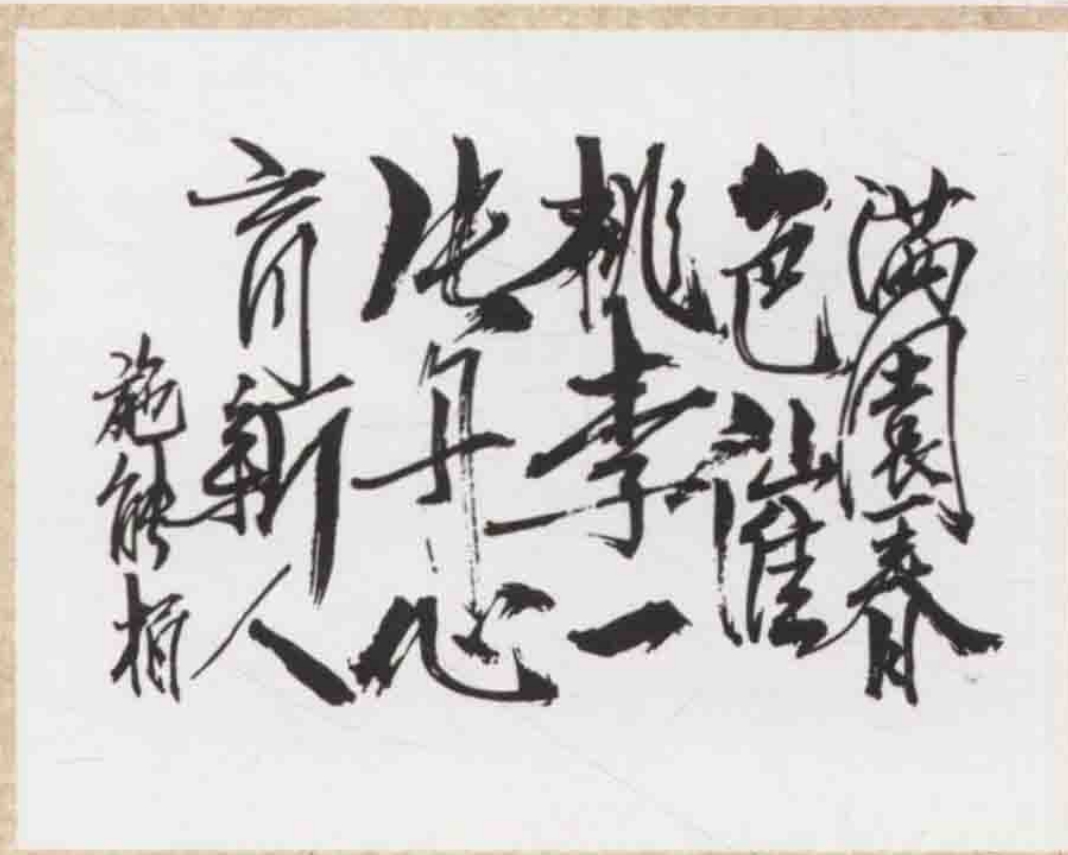 满園春
色催
桃李一
片丹心
育新人
施能柏